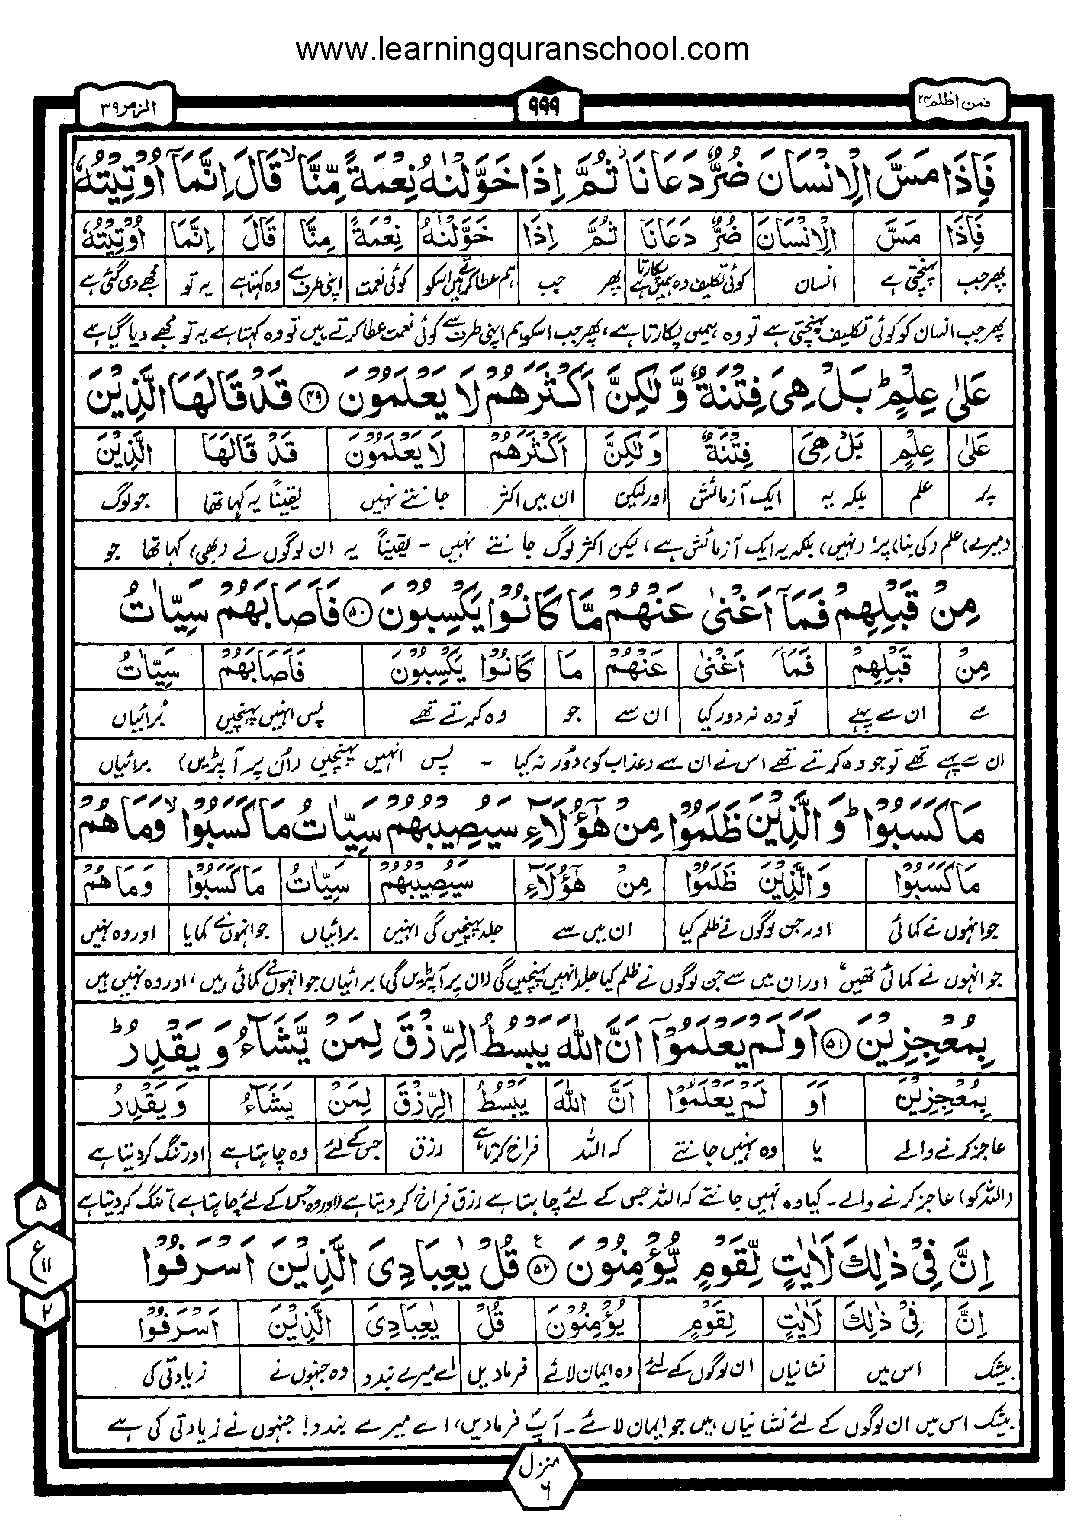 www.learningquranschool.com
فمن اظلم ۲۴
۹۹۹
الزمر ۳۹
فَاِذَا مَسَّ الْاِنْسَانَ ضُرٌّ دَعَانَا ثُمَّ اِذَا خَوَّلْنٰهُ نِعْمَةً مِّنَّا ۙ قَالَ اِنَّمَاۤ اُوْتِيْتُهٗ
فَاِذَا مَسَّ الْاِنْسَانَ ضُرٌّ دَعَانَا ثُمَّ اِذَا خَوَّلْنٰهُ نِعْمَةً مِنَّا قَالَ اِنَّمَا اُوْتِيْتُهٗ
پھر جب پہنچتی ہے انسان کوئی تکلیف وہ ہمیں پکارتا ہے پھر جب ہم عطا کرتے ہیں اسکو کوئی نعمت اپنی طرف سے وہ کہتا ہے یہ تو مجھے دی گئی ہے
پھر جب انسان کو کوئی تکلیف پہنچتی ہے تو وہ ہمیں پکارتا ہے، پھر جب اسکو ہم اپنی طرف سے کوئی نعمت عطا کرتے ہیں تو وہ کہتا ہے یہ تو مجھے دیا گیا ہے
عَلٰى عِلْمٍ ؕ بَلْ هِىَ فِتْنَةٌ وَّلٰكِنَّ اَكْثَرَهُمْ لَا يَعْلَمُوْنَ ۴۹ قَدْ قَالَهَا الَّذِيْنَ
عَلٰى عِلْمٍ بَلْ هِىَ فِتْنَةٌ وَلٰكِنَّ اَكْثَرَهُمْ لَا يَعْلَمُوْنَ قَدْ قَالَهَا الَّذِيْنَ
پر علم بلکہ یہ ایک آزمائش اور لیکن ان میں اکثر جانتے نہیں یقیناً یہ کہا تھا جو لوگ
(میرے) علم (کی بنا) پر (نہیں) بلکہ یہ ایک آزمائش ہے، لیکن اکثر لوگ جانتے نہیں - یقیناً یہ ان لوگوں نے (بھی) کہا تھا جو
مِنْ قَبْلِهِمْ فَمَاۤ اَغْنٰى عَنْهُمْ مَّا كَانُوْا يَكْسِبُوْنَ ۵۰ فَاَصَابَهُمْ سَيِّاٰتُ
مِنْ قَبْلِهِمْ فَمَاۤ اَغْنٰى عَنْهُمْ مَا كَانُوْا يَكْسِبُوْنَ فَاَصَابَهُمْ سَيِّاٰتُ
سے ان سے پہلے تو وہ نہ دور کیا ان سے جو وہ کرتے تھے پس انہیں پہنچیں برائیاں
ان سے پہلے تھے تو جو وہ کرتے تھے اس نے ان سے (عذاب کو) دور نہ کیا - پس انہیں پہنچیں (ان پر آپڑیں) برائیاں
مَا كَسَبُوْا ؕ وَالَّذِيْنَ ظَلَمُوْا مِنْ هٰۤؤُلَآءِ سَيُصِيْبُهُمْ سَيِّاٰتُ مَا كَسَبُوْا ۙ وَمَا هُمْ
مَا كَسَبُوْا وَالَّذِيْنَ ظَلَمُوْا مِنْ هٰۤؤُلَآءِ سَيُصِيْبُهُمْ سَيِّاٰتُ مَا كَسَبُوْا وَمَا هُمْ
جو انہوں نے کمائی اور جن لوگوں نے ظلم کیا ان میں سے جلد پہنچیں گی انہیں برائیاں جو انہوں نے کمایا اور وہ نہیں
جو انہوں نے کمائی تھیں اور ان میں سے جن لوگوں نے ظلم کیا جلد انہیں پہنچیں گی (ان پر آپڑیں گی) برائیاں جو انہوں نے کمائی ہیں، اور وہ نہیں ہیں
بِمُعْجِزِيْنَ ۵۱ اَوَلَمْ يَعْلَمُوْۤا اَنَّ اللّٰهَ يَبْسُطُ الرِّزْقَ لِمَنْ يَّشَآءُ وَيَقْدِرُ ؕ
بِمُعْجِزِيْنَ اَوَ لَمْ يَعْلَمُوْا اَنَّ اللّٰهَ يَبْسُطُ الرِّزْقَ لِمَنْ يَشَآءُ وَيَقْدِرُ
عاجز کرنے والے یا وہ نہیں جانتے کہ اللہ فراخ کرتا ہے رزق جس کے لئے وہ چاہتا ہے اور تنگ کر دیتا ہے
(اللہ کو) عاجز کرنے والے۔ کیا وہ نہیں جانتے کہ اللہ جس کے لئے چاہتا ہے رزق فراخ کر دیتا ہے (اور وہ جس کے لئے چاہتا ہے) تنگ کر دیتا ہے
اِنَّ فِىْ ذٰلِكَ لَاٰيٰتٍ لِّقَوْمٍ يُّؤْمِنُوْنَ ۵۲ قُلْ يٰعِبَادِىَ الَّذِيْنَ اَسْرَفُوْا
اِنَّ فِىْ ذٰلِكَ لَاٰيٰتٍ لِقَوْمٍ يُؤْمِنُوْنَ قُلْ يٰعِبَادِىَ الَّذِيْنَ اَسْرَفُوْا
بیشک اس میں نشانیاں ان لوگوں کے لئے وہ ایمان لائے فرمادیں اے میرے بندو وہ جنہوں نے زیادتی کی
بیشک اس میں ان لوگوں کے لئے نشانیاں ہیں جو ایمان لائے۔ آپ فرمادیں، اے میرے بندو! جنہوں نے زیادتی کی ہے
۵
ع
۱۱
۲
منزل
۶